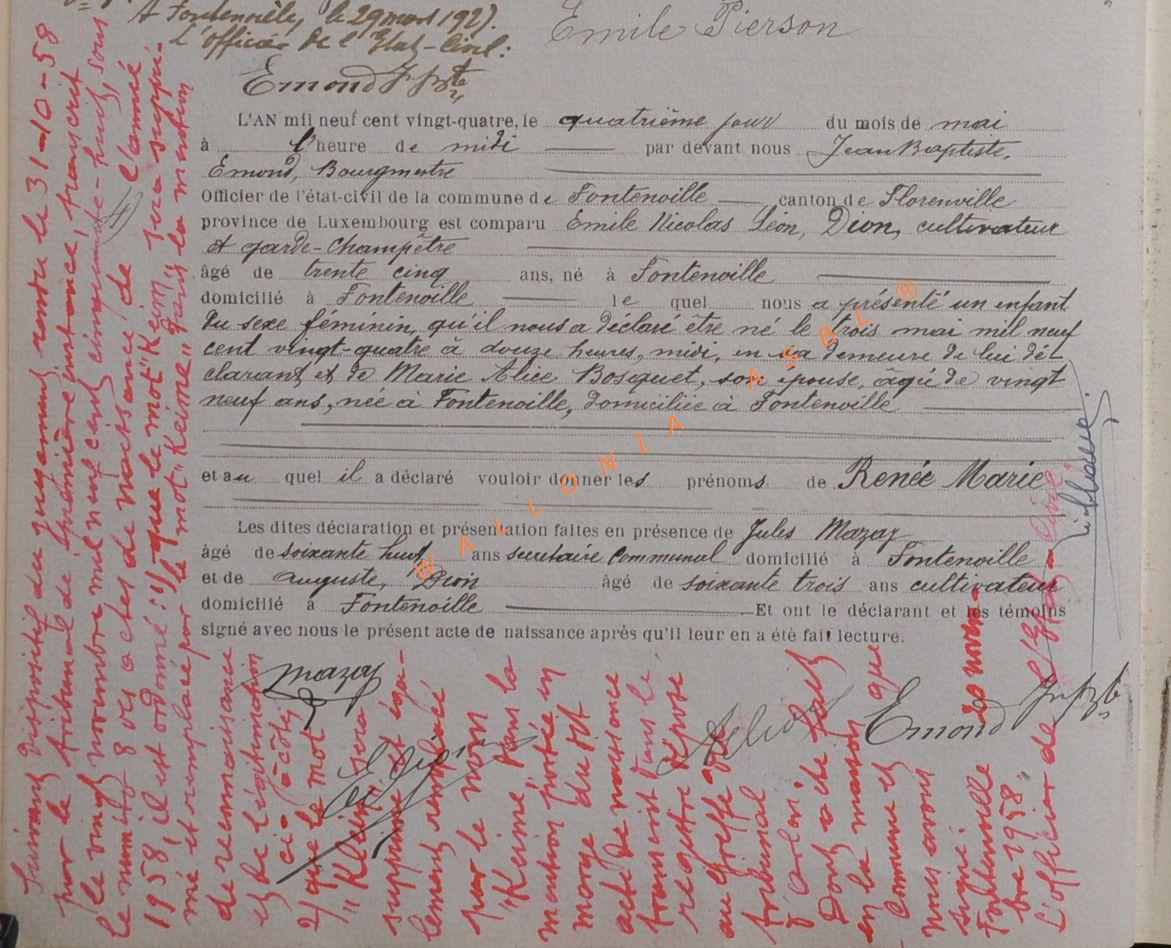 A Fontenoille, le 29 mars 1927.
L'officier de l'Etat-Civil:
Emond J. Bte
Emile Pierson
L'AN mil neuf cent vingt-quatre, le quatrième jour du mois de mai
à l'heure de midi par devant nous Jean Baptiste,
Emond, Bourgmestre
Officier de l'état-civil de la commune de Fontenoille canton de Florenville
province de Luxembourg est comparu Emile Nicolas Léon, Dion, cultivateur
et garde-champêtre
âgé de trente cinq ans, né à Fontenoille
domicilié à Fontenoille le quel nous a présenté un enfant
du sexe féminin, qu'il nous a déclaré être né le trois mai mil neuf
cent vingt-quatre à douze heures, midi, en sa demeure de lui dé-
clarant et de Marie Alice Bosquet, son épouse, âgée de vingt
neuf ans, née à Fontenoille, domiciliée à Fontenoille
et au quel il a déclaré vouloir donner les prénoms de Renée Marie
Les dites déclaration et présentation faites en présence de Jules Mazay
âgé de soixante huit ans secrétaire communal domicilié à Fontenoille
et de Auguste, Dion âgé de soixante trois ans cultivateur
domicilié à Fontenoille Et ont le déclarant et les témoins
signé avec nous le présent acte de naissance après qu'il leur en a été fait lecture.
Mazay
E Dion
A Dion
Emond J. Bte
Suivant dispositif du jugement rendu le 31-10-58
par le tribunal de première instance, transcrit
le vingt novembre mil neuf cent cinquante-huit, sous
le numéro 8 des actes de naissance de l'année
1958, il est ordonné: 1/ que le mot "Keim" sera suppri-
mé et remplacé par le mot "Keime" dans la mention
de reconnaissance
et de légitimation
ci-à-côté
2/ que le mot
sera
supprimé et éga-
lement remplacé
par le nom
"Keime" dans la
mention portée en
marge du dit
acte de naissance
transcrit dans le
registre déposé
au Greffe du
tribunal
d'Arlon,
Dont acte fait
en la maison
Commune et
nous avons
signé:
Fontenoille
20 novem-
bre 1958.
L'officier de l'Etat-Civil
WALLONIA ASBL ®